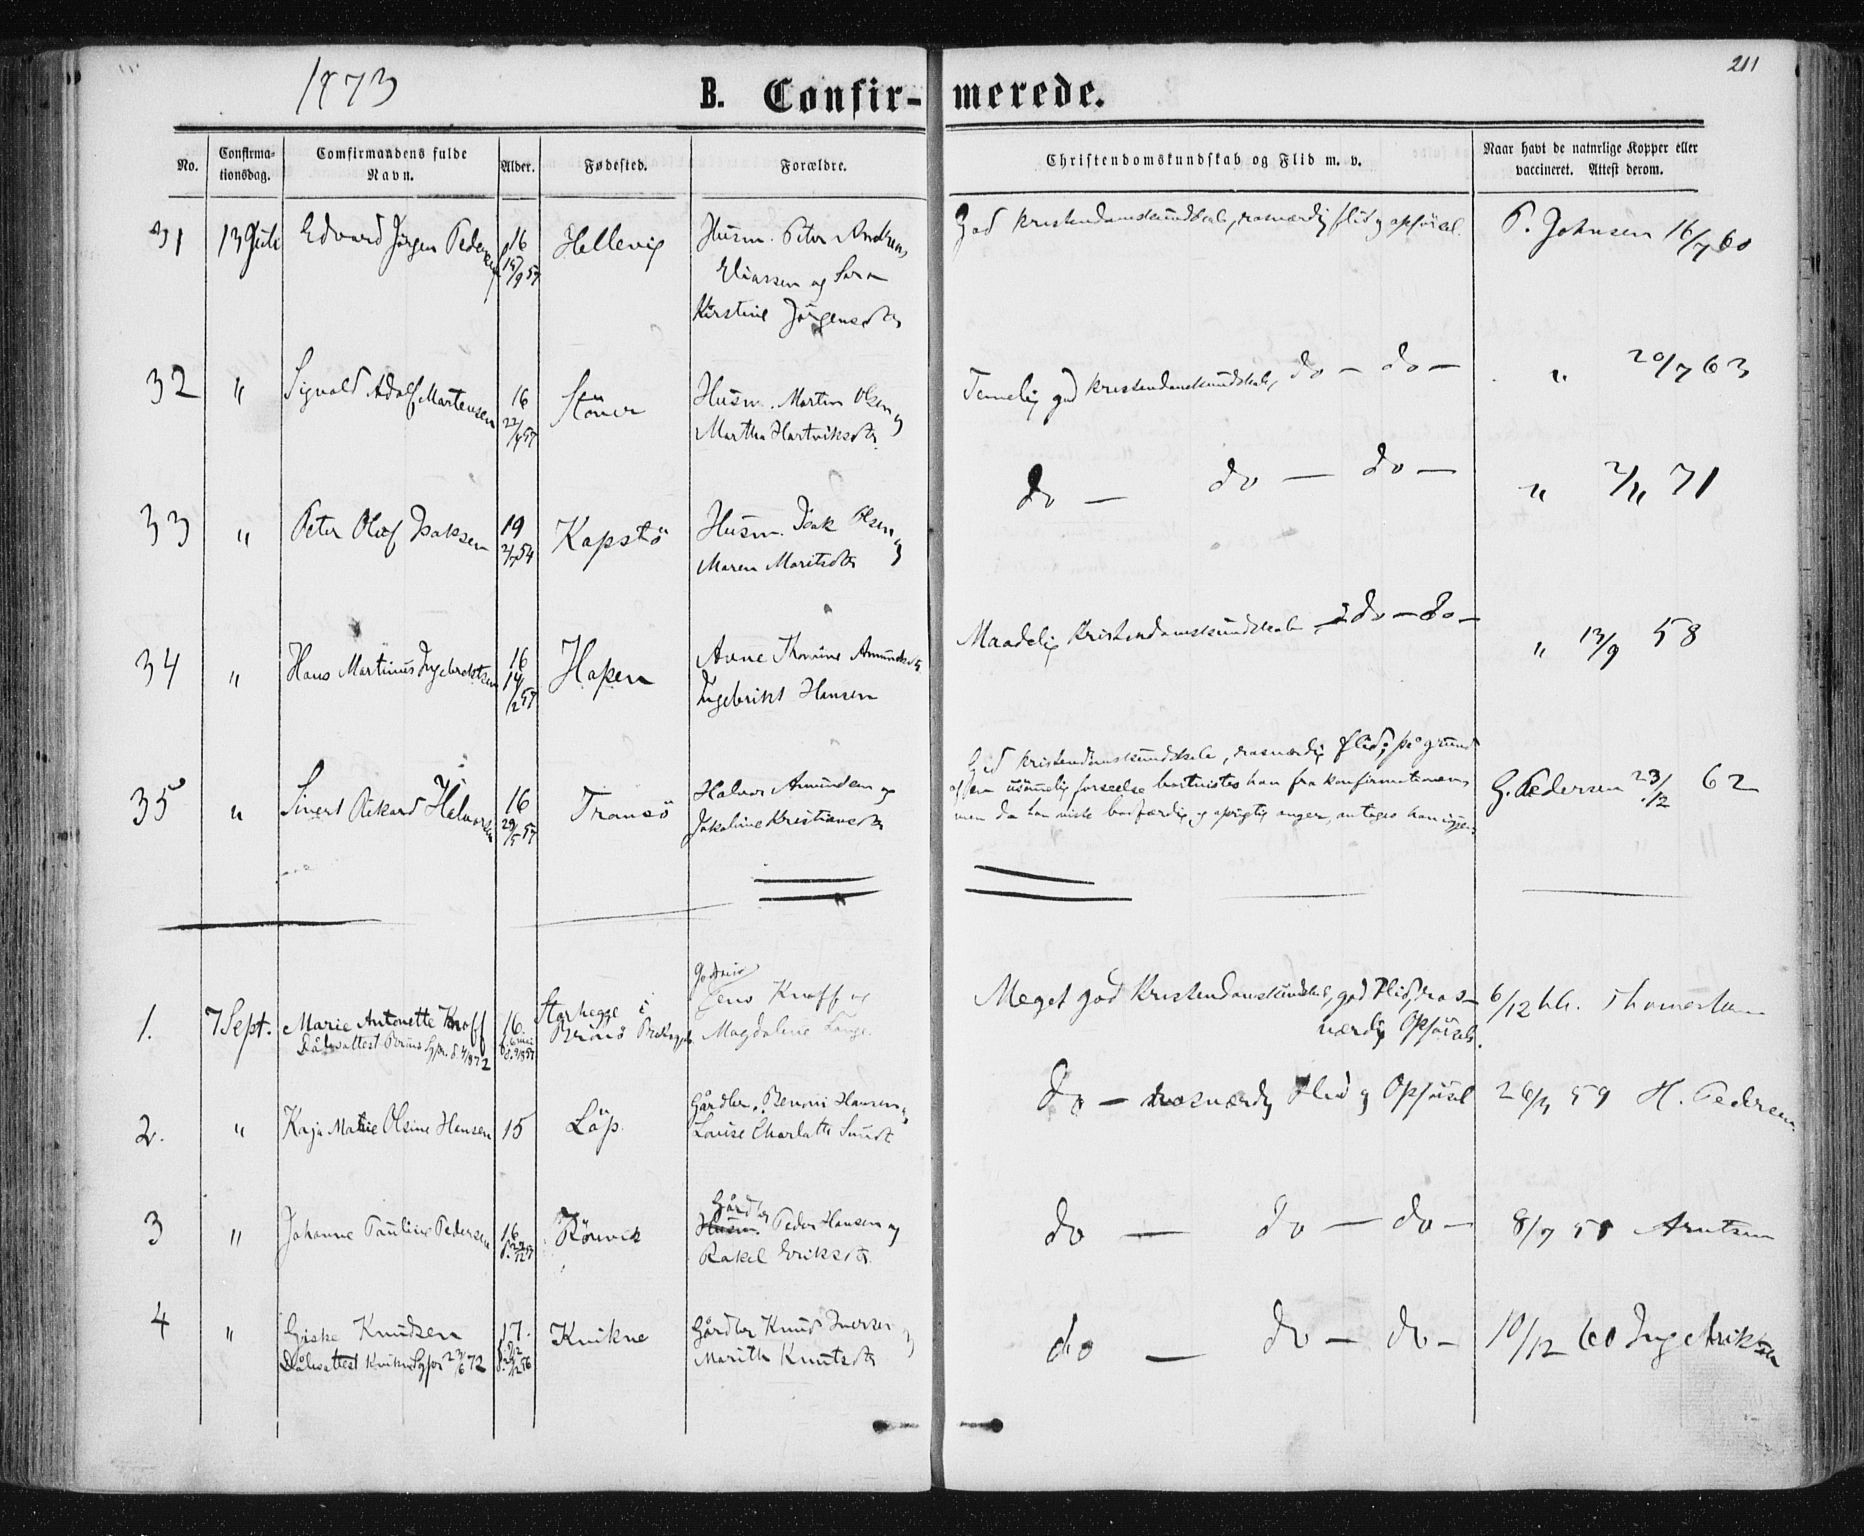 1873
B. Confir-merede.
211
No.
Confirma-
tionsdag.
Comfirmandens fulde
Navn.
Alder.
Fødested.
Forældre.
Christendomskundskab og Flid m. v.
Naar havt de naturlige Kopper eller
vaccineret. Attest derom.
31 13 Juli Edvard Jörgen Pedersen 16 Hellevig Husm. Peter Andreas
Eliassen og Sara
Kirstine Jörgensdtr
God kristendomskundskab, rosværdig flid og opførsel. P. Johnsen 16/7 60
32 " Sigvald Adolf Martensen 16 Husm. Martin Olsen og
Martha Hartviksdtr.
Temelig god kristendomskundskab, do — do — " 20/7 63
33 " Peter Oluf Isaksen 19 Kapstö Husm. Isak Olsen og
Maren Moritsdtr
do — do — do — " 2/11 71
34 " Hans Martinus Ingebrektsen 16 Hopen Anne Thomine Amundsdtr
Ingebrikt Hansen
Maadelig kristendomskundskab, do — do — " 13/9 58
35 " Sivert Rikard Halvorsen 16 29/5 57 Transö Halvor Amundsen og
Jakobine Kristiansdtr
God kristendomskundskab, rosværdig flid; på grund
af en usømmelig forseelse bortvistes han fra konfirmationen,
men da han viste bodfærdig og oprigtig anger, antoges han igjen.
G. Pedersen 23/12 62
1. 7 Sept. Marie Antonette Knoff 16. Storhegge i
Brönö Prstgj.
Jens Knoff og
Magdalene Lange.
Meget god Kristendomskundskab, god Flid, ros-
værdig Opførsel.
6/12
2. " Kaja Marie Olsine Hansen 15 Löp. Gårdbr. Benoni Hansen og
Louise Charlotte Smidt
do — rosværdig Flid og Opførsel 59 H. Pedersen
3 " Johanne Pauline Pedersen 16 Rörvik Gårdbr
Husm. Peder Hansen og
Rakel Eriksdtr.
do — do — do — 8/7 58 Arntsen
4 " Giske Knudsen 17. Kvikne Gårdbr Knud Iversen og
Marith Knutsdtr
Dåbsattest Kvikne 72
do — do — do — 10/12 60